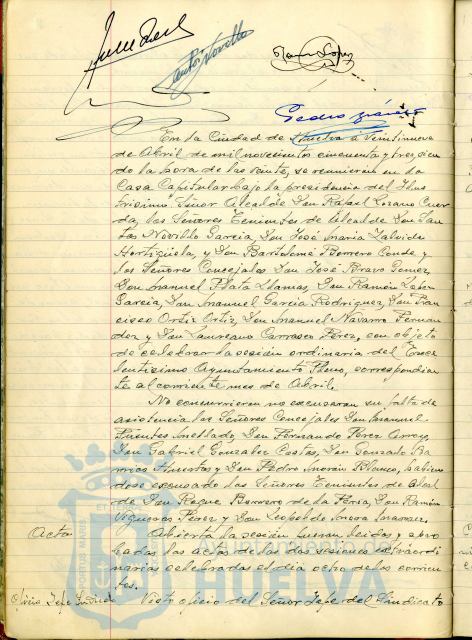 Ramón López
Pedro
En la Ciudad de Huelva a veintinueve
de Abril de mil novecientos cincuenta y tres, sien
do la hora de las veinte, se reunieron en la
Casa Capitular bajo la presidencia del Ilus
trísimo Señor Alcalde Don Rafael Lozano Cuer
da, los Señores Tenientes de Alcalde Don San
tos Novillo García, Don José María Zalvide
Hortigüela, y Don Bartolomé Borrero Conde y
los Señores Concejales Don José Bravo Gómez,
Don Manuel Plata Llamas, Don Ramón López
García, Don Manuel García Rodríguez, Don Fran
cisco Ortiz Ortiz, Don Manuel Navarro Fernan
dez y Don Laureano Carrasco Pérez, con objeto
de celebrar la sesión ordinaria del Exce
lentísimo Ayuntamiento Pleno, correspondien
te al corriente mes de Abril.
No concurrieron ni excusaron su falta de
asistencia los Señores Concejales Don Manuel
Fuentes Don Fernando Pérez
Don Gabriel González Costas, Don Gonzalo Ba
rrios Huertas y Don Pedro Morón Blanco, habién
dose excusado los Señores Tenientes de Alcal
de Don Roque Borrero de la Don Ramón
Pérez y Don Leopoldo
Actas Abierta la sesión fueron leídas y apro
badas las actas de las dos sesiones extraordi
narias celebradas el día ocho de los corrien
tes.
Oficio Jefe Sindicato Visto oficio del Señor Jefe del Sindicato
PORTUS MARIS
HUELVA